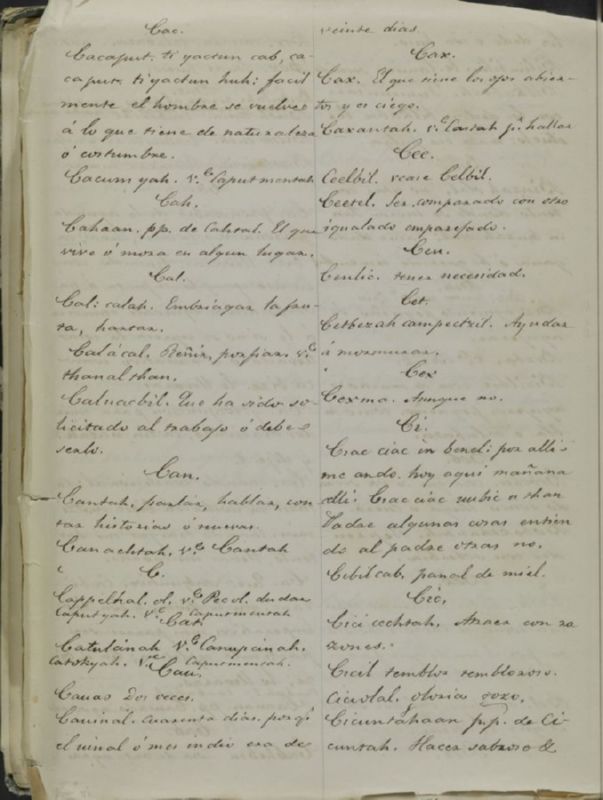 Cac.
Cacaput. ti yactun cab, ca-
caput. ti yactun huh: facil
mente el hombre se vuelve
á lo que tiene de naturaleza
ó costumbre.
Cacum yah. v.e Caput mentah
Cah.
Cahaan. pp. de Cahtal. El que
vive ó mora en algun lugar.
Cal.
Cal: calah. Embriagar la fru-
ta, hartar.
Calácal. Reñir, porfiar. v.e
thanal than.
Caluacbil. Que ha sido so-
licitado al trabajo ó debe
serlo.
Can.
Cantah, parlar, hablar, con
tar historias ó nuevas.
Canachtah, v.e Cantah
C.
Cappelhal. ol, v.e Pecol. dudar
Caputyah. v.e Caputmentah
Cat.
Catulánah v.e Canupinah.
Catokyah. v.e Caputmentah.
Cau.
Cauao Dos veces.
Cauinal. cuarenta dias. porq.e
el uinal ó mes indio era de
veinte dias.
Cax.
Cax. El que tiene los ojos abier-
tos y es ciego.
Caxantah. v.e Caxtah p.a hallar
Cee.
Ceelbil. vease Celbil.
Ceetel. Ser comparado con otro
igualado emparejado.
Cen.
Cenlic. tener necesidad.
Cet.
Cetbezah campectzil. Ayudar
á murmurar.
Cex
Cexma. Aunque no.
Ci.
Ciac ciac in benel: por alli
me ando. hoy aqui mañana
alli. Ciac ciac uubic u than
Padre algunas cosas entien
do al padre otras no.
Cibilcab, panal de miel.
Cic.
Cici cochtah. Atraer con ra
zones.
Cicil temblor tembloroso.
Ciciolal. gloria gozo.
Cicuntáhaan p.p. de Ci-
cuntah. Hacer sabroso &